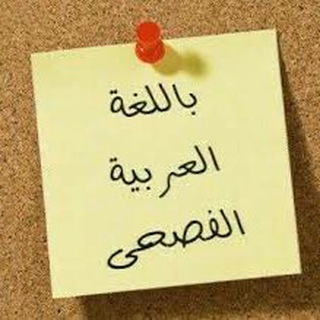 باللغة
العربية
الفصحى